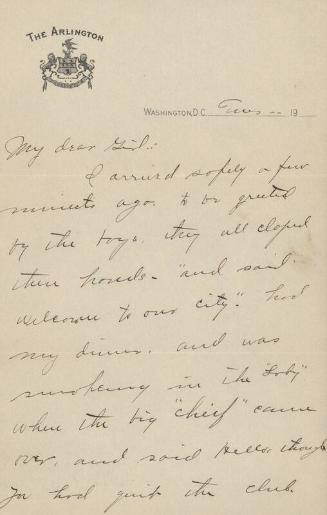 The Arlington
Washington, D.C. Tues -- 19
My dear Girl.:
I arrived safely a few
minuets ago. to be greeted
by the boys. they all claped
their hands - "and said
welcome to our city". had
my dinner. and was
smokeing in the "Loby"
when the big "chief" came
over. and said Hello. though
you had quit the club